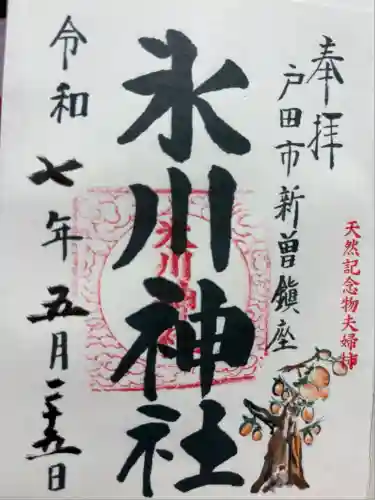 奉拝
戸田市新曽鎮座
天然記念物夫婦柿
氷川神社
氷川神社
令和七年五月二十五日